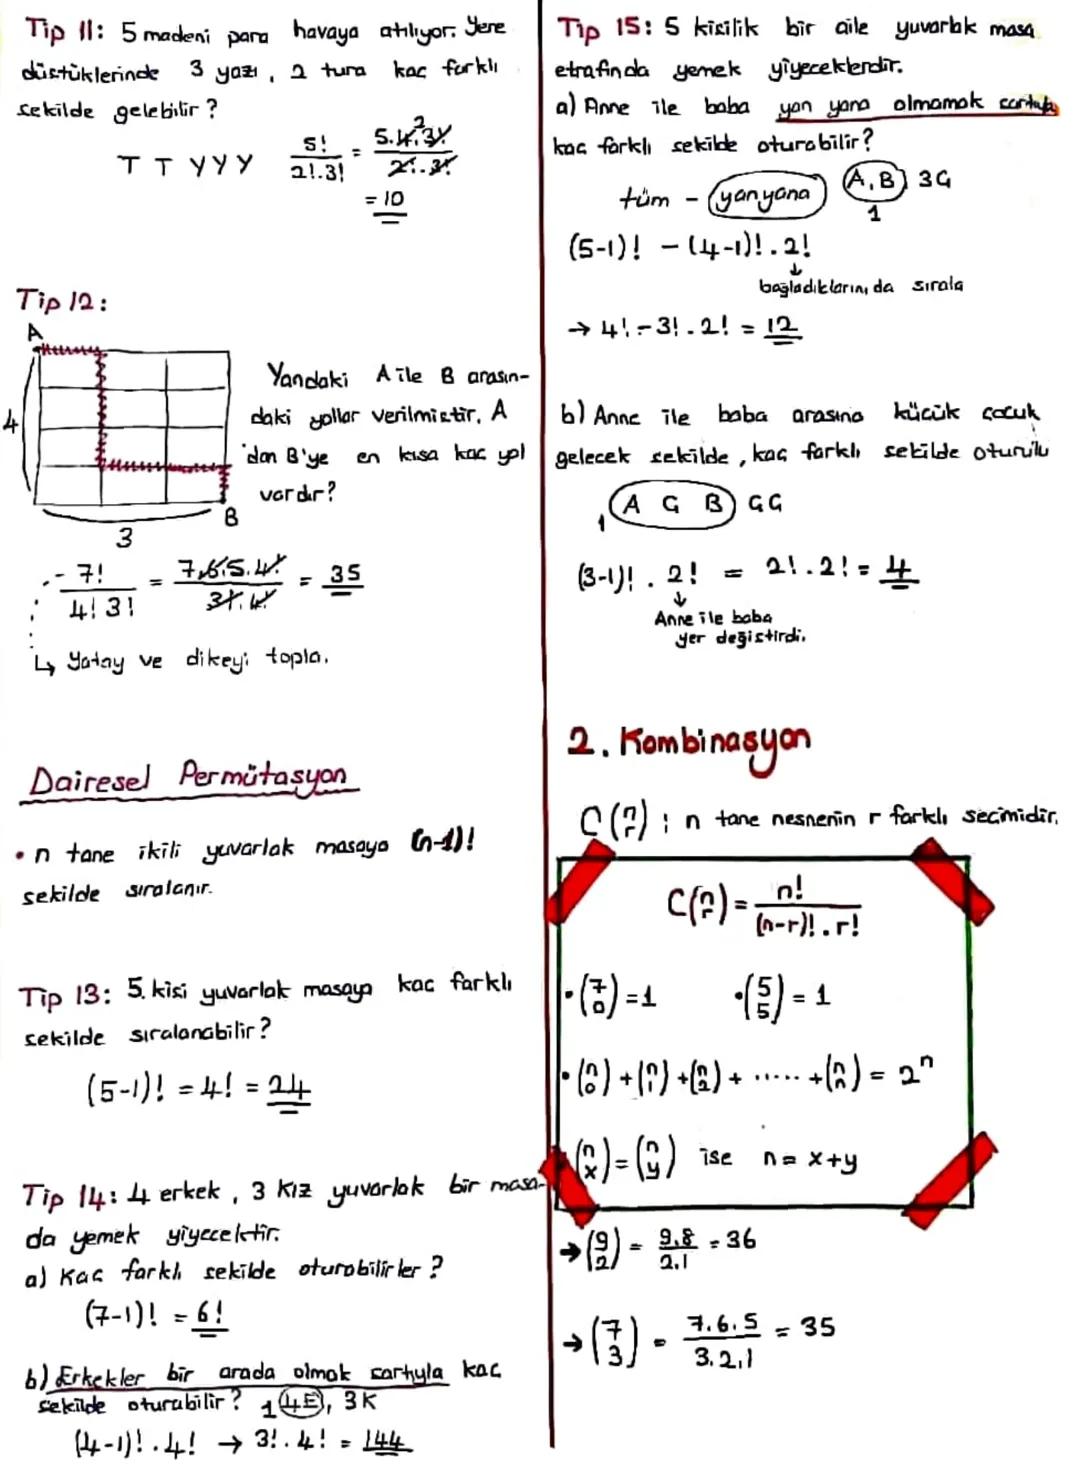 Tip 11: 5 madeni para havaya atılıyor. Yere
düştüklerinde 3 yazı, 2 tura kaç farklı
şekilde gelebilir?
T T Y Y Y 5!/2!.3! = 5.4.3!/2!.3! 2
= 10
Tip 12:
A
4
3
B
Yandaki A ile B arasın-
daki yollar verilmiştir. A
'dan B'ye en kısa kaç yol
vardır?
7!/4! 3! = 7.6.5.4!/3!.4! = 35
↳ Yatay ve dikeyi topla.
Dairesel Permütasyon
• n tane ikili yuvarlak masaya (n-1)!
şekilde sıralanır.
Tip 13: 5 kişi yuvarlak masaya kaç farklı
şekilde sıralanabilir?
(5-1)! = 4! = 24
Tip 14: 4 erkek, 3 kız yuvarlak bir masa-
da yemek yiyecektir.
a) Kaç farklı şekilde oturabilirler?
(7-1)! = 6!
b) Erkekler bir arada olmak şartıyla kaç
şekilde oturabilir? 1 4E, 3K
(4-1)!.4! → 3!.4! = 144
Tip 15: 5 kişilik bir aile yuvarlak masa
etrafında yemek yiyeceklerdir.
a) Anne ile baba yan yana olmamak şartıyla
kaç farklı şekilde oturabilir?
tüm - yanyana A,B 3Ç
1
(5-1)! - (4-1)!.2!
↓
bağladıklarını da sırala
→ 4! - 3!.2! = 12
b) Anne ile baba arasına küçük çocuk
gelecek şekilde, kaç farklı şekilde oturulu
1 A Ç B ÇÇ
(3-1)! . 2! = 2!.2! = 4
↓
Anne ile baba
yer değiştirdi.
2. Kombinasyon
C(n r) : n tane nesnenin r farklı seçimidir.
C(n r) = n!/(n-r)!.r!
• (7 0) = 1 • (5 5) = 1
• (n 0) + (n 1) + (n 2) + ..... + (n n) = 2ⁿ
(n x) = (n y) ise n = x+y
→ (9 2) = 9.8/2.1 = 36
→ (7 3) = 7.6.5/3.2.1 = 35